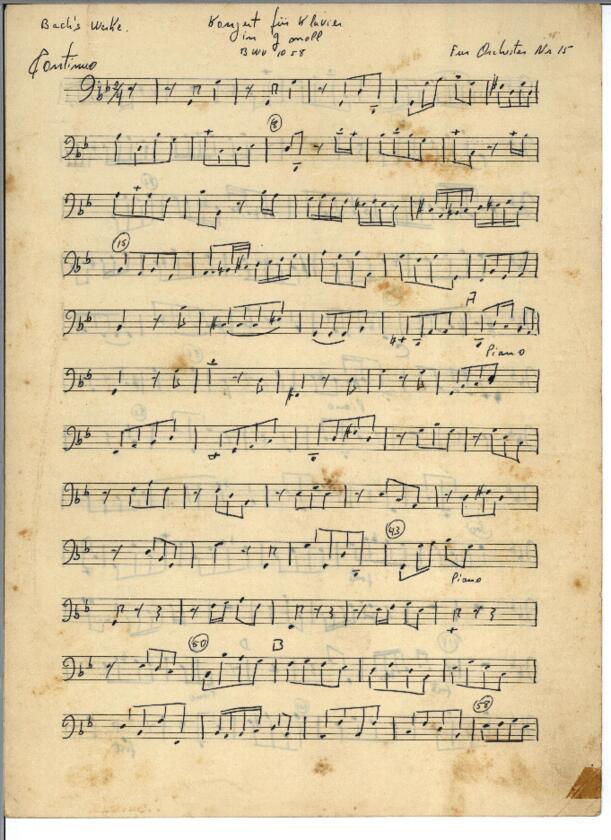 Bach's Werke.
Konzert für Klavier
in g moll
BWV 1058
Für Orchester Nr 15
Continuo
2/4
8
15
A
Piano
43
Piano
50
B
58